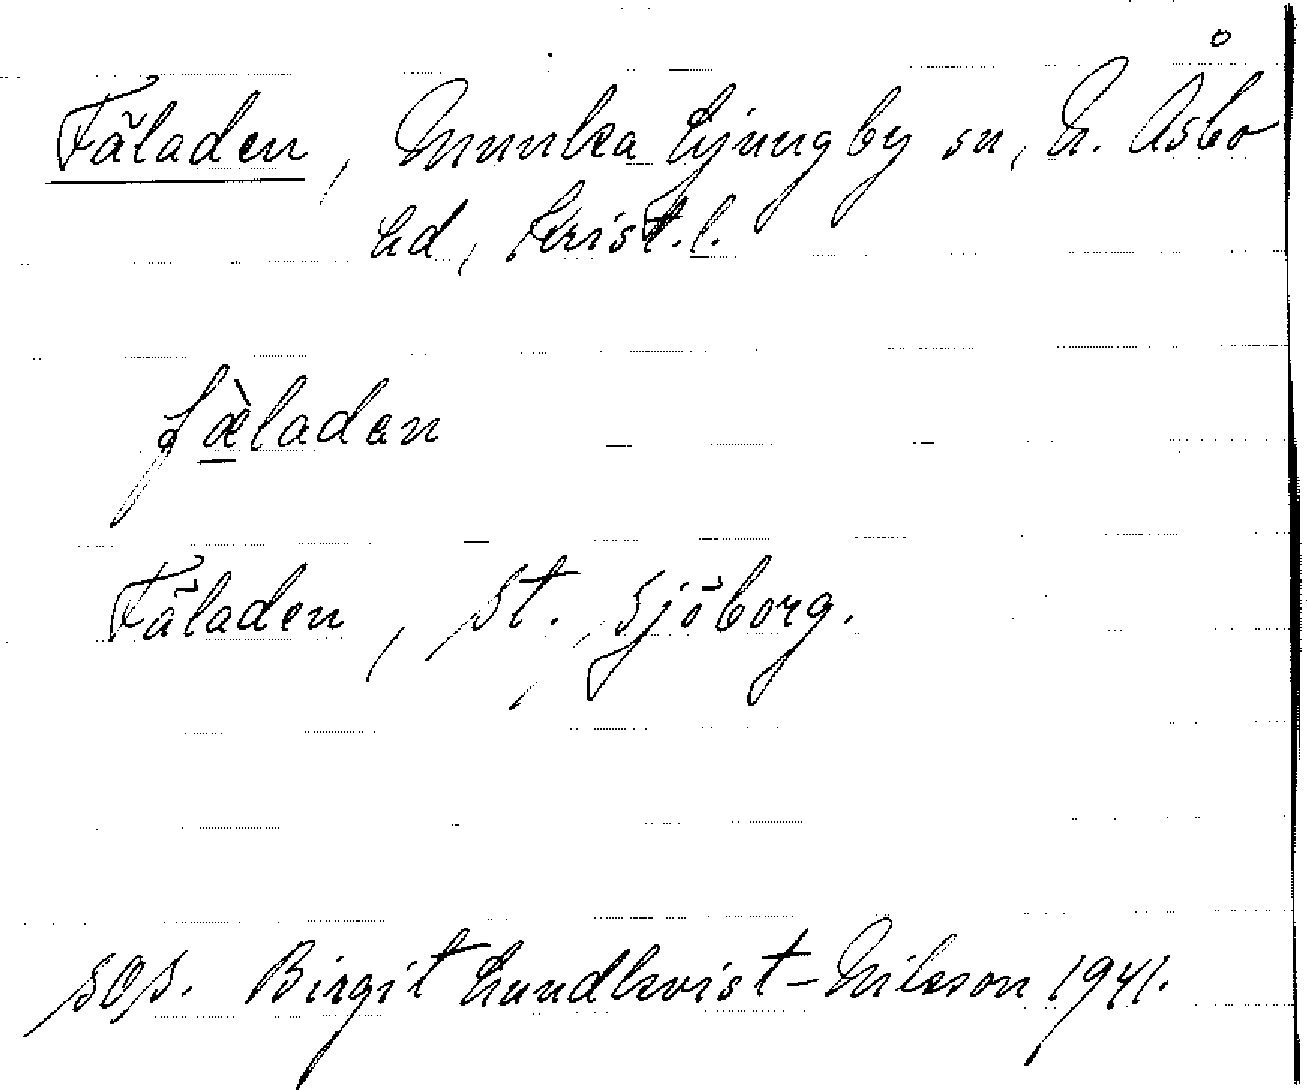 Fäladen, Munka Ljungby sn, N. Åsbo
hd, Krist.l.
fæ̀ladan
Fäladen, St. Sjöborg.
SOS. Birgit Lundkvist-Nilsson 1941.